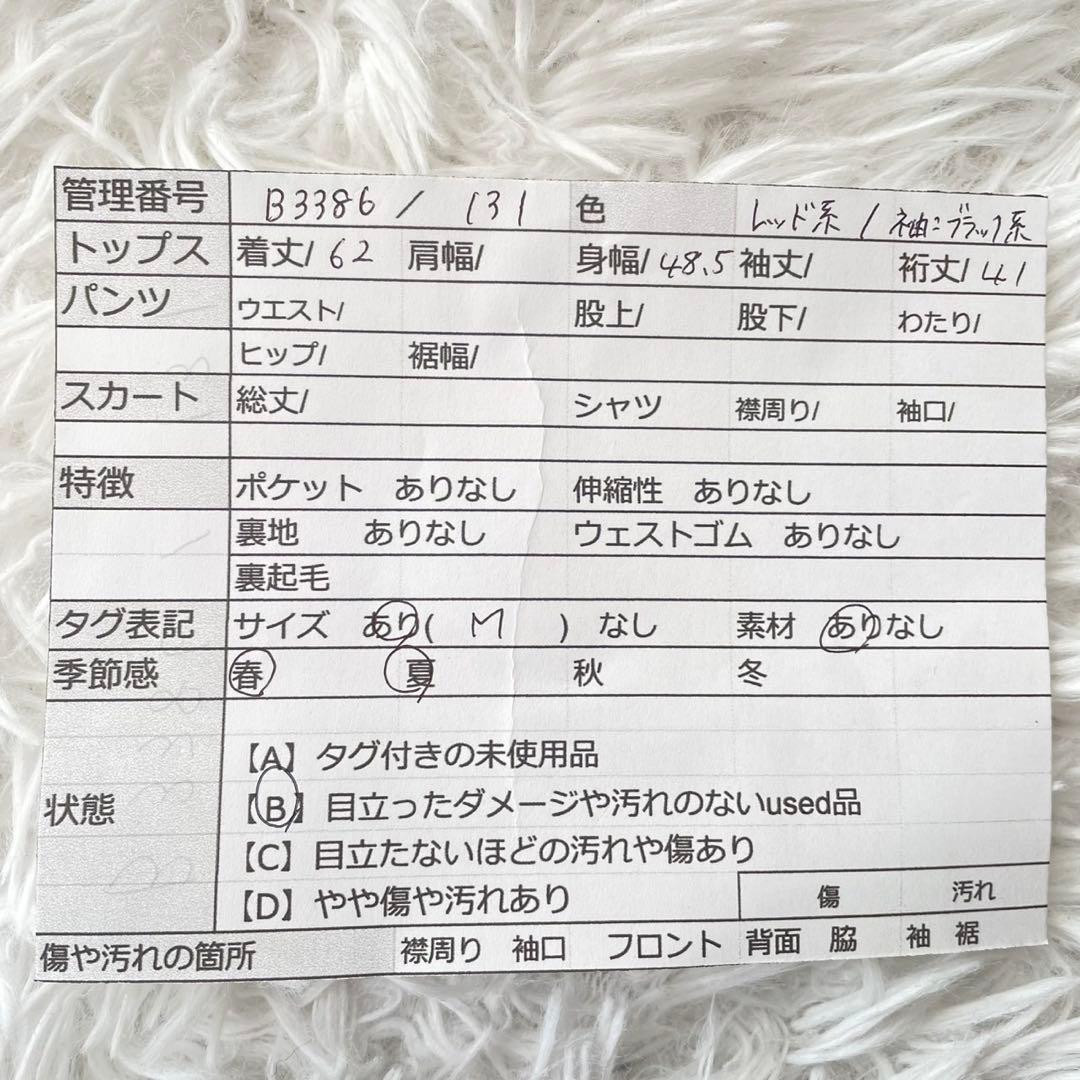 管理番号 B3386 / 131 色 レッド系 / 袖:ブラック系
トップス 着丈/ 62 肩幅/ 身幅/ 48.5 袖丈/ 裄丈/ 41
パンツ ウエスト/ 股上/ 股下/ わたり/
ヒップ/ 裾幅/
スカート 総丈/ シャツ 襟周り/ 袖口/
特徴 ポケット ありなし 伸縮性 ありなし
裏地 ありなし ウェストゴム ありなし
裏起毛
タグ表記 サイズ あり( M ) なし 素材 ありなし
季節感 春 夏 秋 冬
【A】タグ付きの未使用品
状態 【B】目立ったダメージや汚れのないused品
【C】目立たないほどの汚れや傷あり
【D】やや傷や汚れあり 傷 汚れ
傷や汚れの箇所 襟周り 袖口 フロント 背面 脇 袖 裾